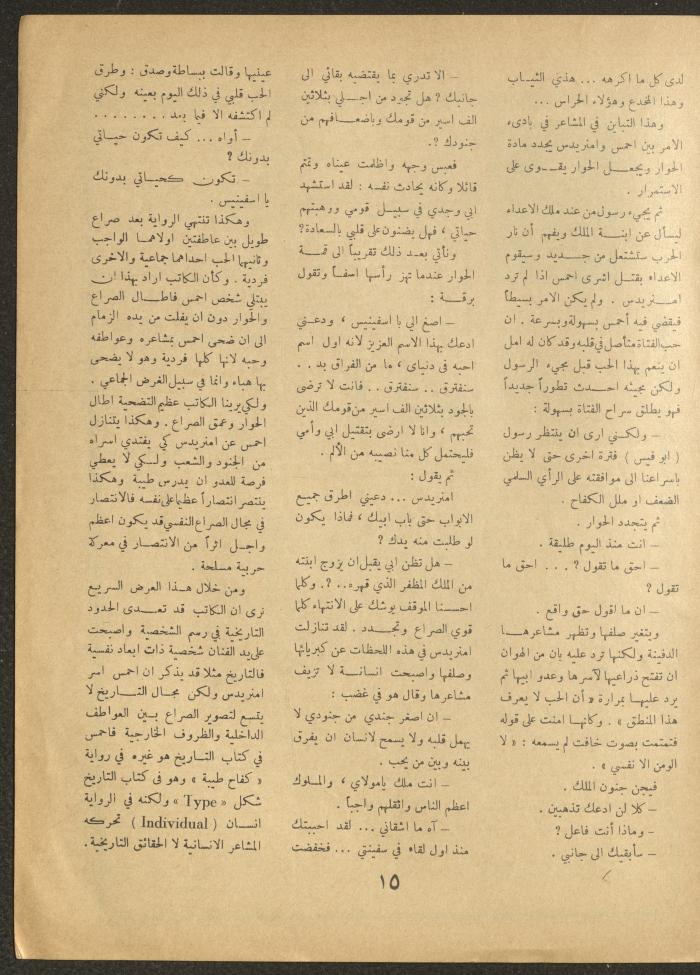 لدى كل ما اكرهه ... هذي الثيـاب
وهذا المخدع وهؤلاء الحراس ...
وهذا التباين في المشاعر في بادىء
الامر بين احمس وامنريدس يحدد مادة
الحوار ويجعـل الحوار يقـوى على
الاستمرار .
ثم يجيء رسول من عند ملك الاعداء
ليسأل عن ابنـة الملك ويفهم أن نار
الحرب ستشتعل من جـديد وسيقوم
الاعداء بقتـل اسرى احمس اذا لم ترد
امنـريدس . ولم يكن الامر بسيطاً
فيقضي فيه أحمس بسهولة وبسرعة . ان
حب الفتاة متأصل في قلبه وقد كان له امل
ان ينعم بهذا الحب قبل مجيء الرسول
ولكن مجيئه احـدث تطوراً جديداً
فهو يطلق سراح الفتاة بسهولة :
– ولكـني ارى ان ينتظر رسول
( ابو فيس ) فترة اخرى حتى لا يظن
باسراعنا الى موافقته على الرأي السلمي
الضعف او ملل الكفاح .
ثم يتجدد الحوار .
– انت منذ اليوم طليقة .
– احق ما تقول ? ... احق ما
تقول ?
– ان ما اقول حق واقع .
ويتغير صلفها وتظهر مشاعرهـا
الدفينة ولكنها ترد عليه بان من الهوان
ان تفتح ذراعيها لآسرها وعدو ابيها ثم
يرد عليهـا بمرارة « أن الحب لا يعرف
هذا المنطق » . وكأنهـا امنت على قوله
فتمتمت بصوت خافت لم يسمعه : « لا
الومن الا نفسي » .
فيجن جنون الملك .
– كلا لن ادعك تذهبين .
– وماذا أنت فاعل ?
– سأبقيك الى جانبي .
– الا تدري بما يقتضيه بقائي الى
جانبك ? هل تجود من اجـلي بثلاثين
الف اسير من قومك وباضعـافهم من
جنودك ?.
فعبس وجهه واظلمت عيناه وتمتم
قائلا وكأنه يحادث نفسه : لقد استشهد
ابي وجدي في سبيـل قومي ووهبتهم
حياتي ، فهل يضنون على قلبي بالسعادة?
ونأتي بعـد ذلك تقريباً الى قمـة
الحوار عندما تهز رأسها اسفـاً وتقول
برقـة :
– اصغ الي يا اسفينيس ، ودعـني
ادعك بهذا الاسم العزيز لانه اول اسم
احبه في دنياي ، ما من الفراق بد . .
سنفترق . . سنفترق . . فانت لا ترضى
بالجود بثلاثين الف اسير من قومك الذين
تحبهم ، وانا لا ارضى بتقتيل ابي وأمي
فليحتمل كل منا نصيبه من الألم .
ثم يقول :
امنريدس ... دعيني اطرق جميـع
الابواب حتى باب ابيك ، فماذا يكون
لو طلبت منه يدك ?
– هل تظن ابي يقبل ان يزوج ابنته
من الملك المظفر الذي قهره. . ?. وكلما
احسـنا الموقف يوشك على الانتهاء كلما
قوي الصراع وتجـدد . لقد تنازلت
امنريدس في هذه اللحظات عن كبريائها
وصلفها واصبحت انسانـة لا تزيف
مشاعرها وقال هو في غضب :
– ان اصغر جندي من جنودي لا
يهمل قلبه ولا يسمح لانسان ان يفرق
بينه وبين من يحب .
– انت ملك يامولاي ، والمـلوك
اعظم الناس واثقلهم واجباً .
– آه ما اشقاني ... لقد احببتك
منذ اول لقاء في سفينتي ... فخفضت
عينيها وقالت ببساطة وصدق : وطرق
الحب قلبي في ذلك اليوم بعينه ولكني
لم اكتشفه الا فيما بعد . . . . . . . .
– أواه ... كيف تكون حيـاتي
بدونك ?
– تكون كحيـاتي بدونك
يا اسفينيس .
وهكذا تنتهي الرواية بعد صراع
طويل بين عاطفتين اولاهمـا الواجب
وثانيهما الحب احداهما جماعية والاخرى
فردية . وكأن الكاتب اراد بهذا ان
يبتلي شخص احمس فاطـال الصراع
والحوار دون ان يفلت من يده الزمام
الى ان ضحى احمس بمشاعره وعواطفه
وحبه لانها كلها فردية وهو لا يضحى
بها هباء وانما في سبيل الغرض الجماعي .
ولكي يرينا الكاتب عظيم التضحية اطال
الحوار وعمق الصراع . وهكذا يتنازل
احمس عن امنريدس كي يفتدي اسراه
من الجنود والشعب ولكي لا يعطي
فرصة للعدو ان يدرس طيبة وهكذا
ينتصر انتصاراً عظيما على نفسه فالانتصار
في مجال الصراع النفسي قد يكون اعظم
واجـل اثراً من الانتصـار في معركة
حربية مسلحة .
ومن خلال هـذا العرض السريع
نرى ان الكاتب قد تعـدى الحدود
التاريخية في رسم الشخصية واصبحت
على يد الفنان شخصية ذات ابعاد نفسية
فالتاريخ مثلا قد يذكر ان احمس اسر
امنريدس ولكن مجـال التـاريخ لا
يتسع لتصوير الصراع بـين العواطف
الداخلية والظروف الخارجية فاحمس
في كتاب التـاريخ هو غيره في رواية
« كفاح طيبة » وهو في كتاب التاريخ
شكل « Type » ولكنه في الرواية
انسـان ( Individual ) تحركه
المشاعر الانسانية لا الحقائق التاريخية.
١٥